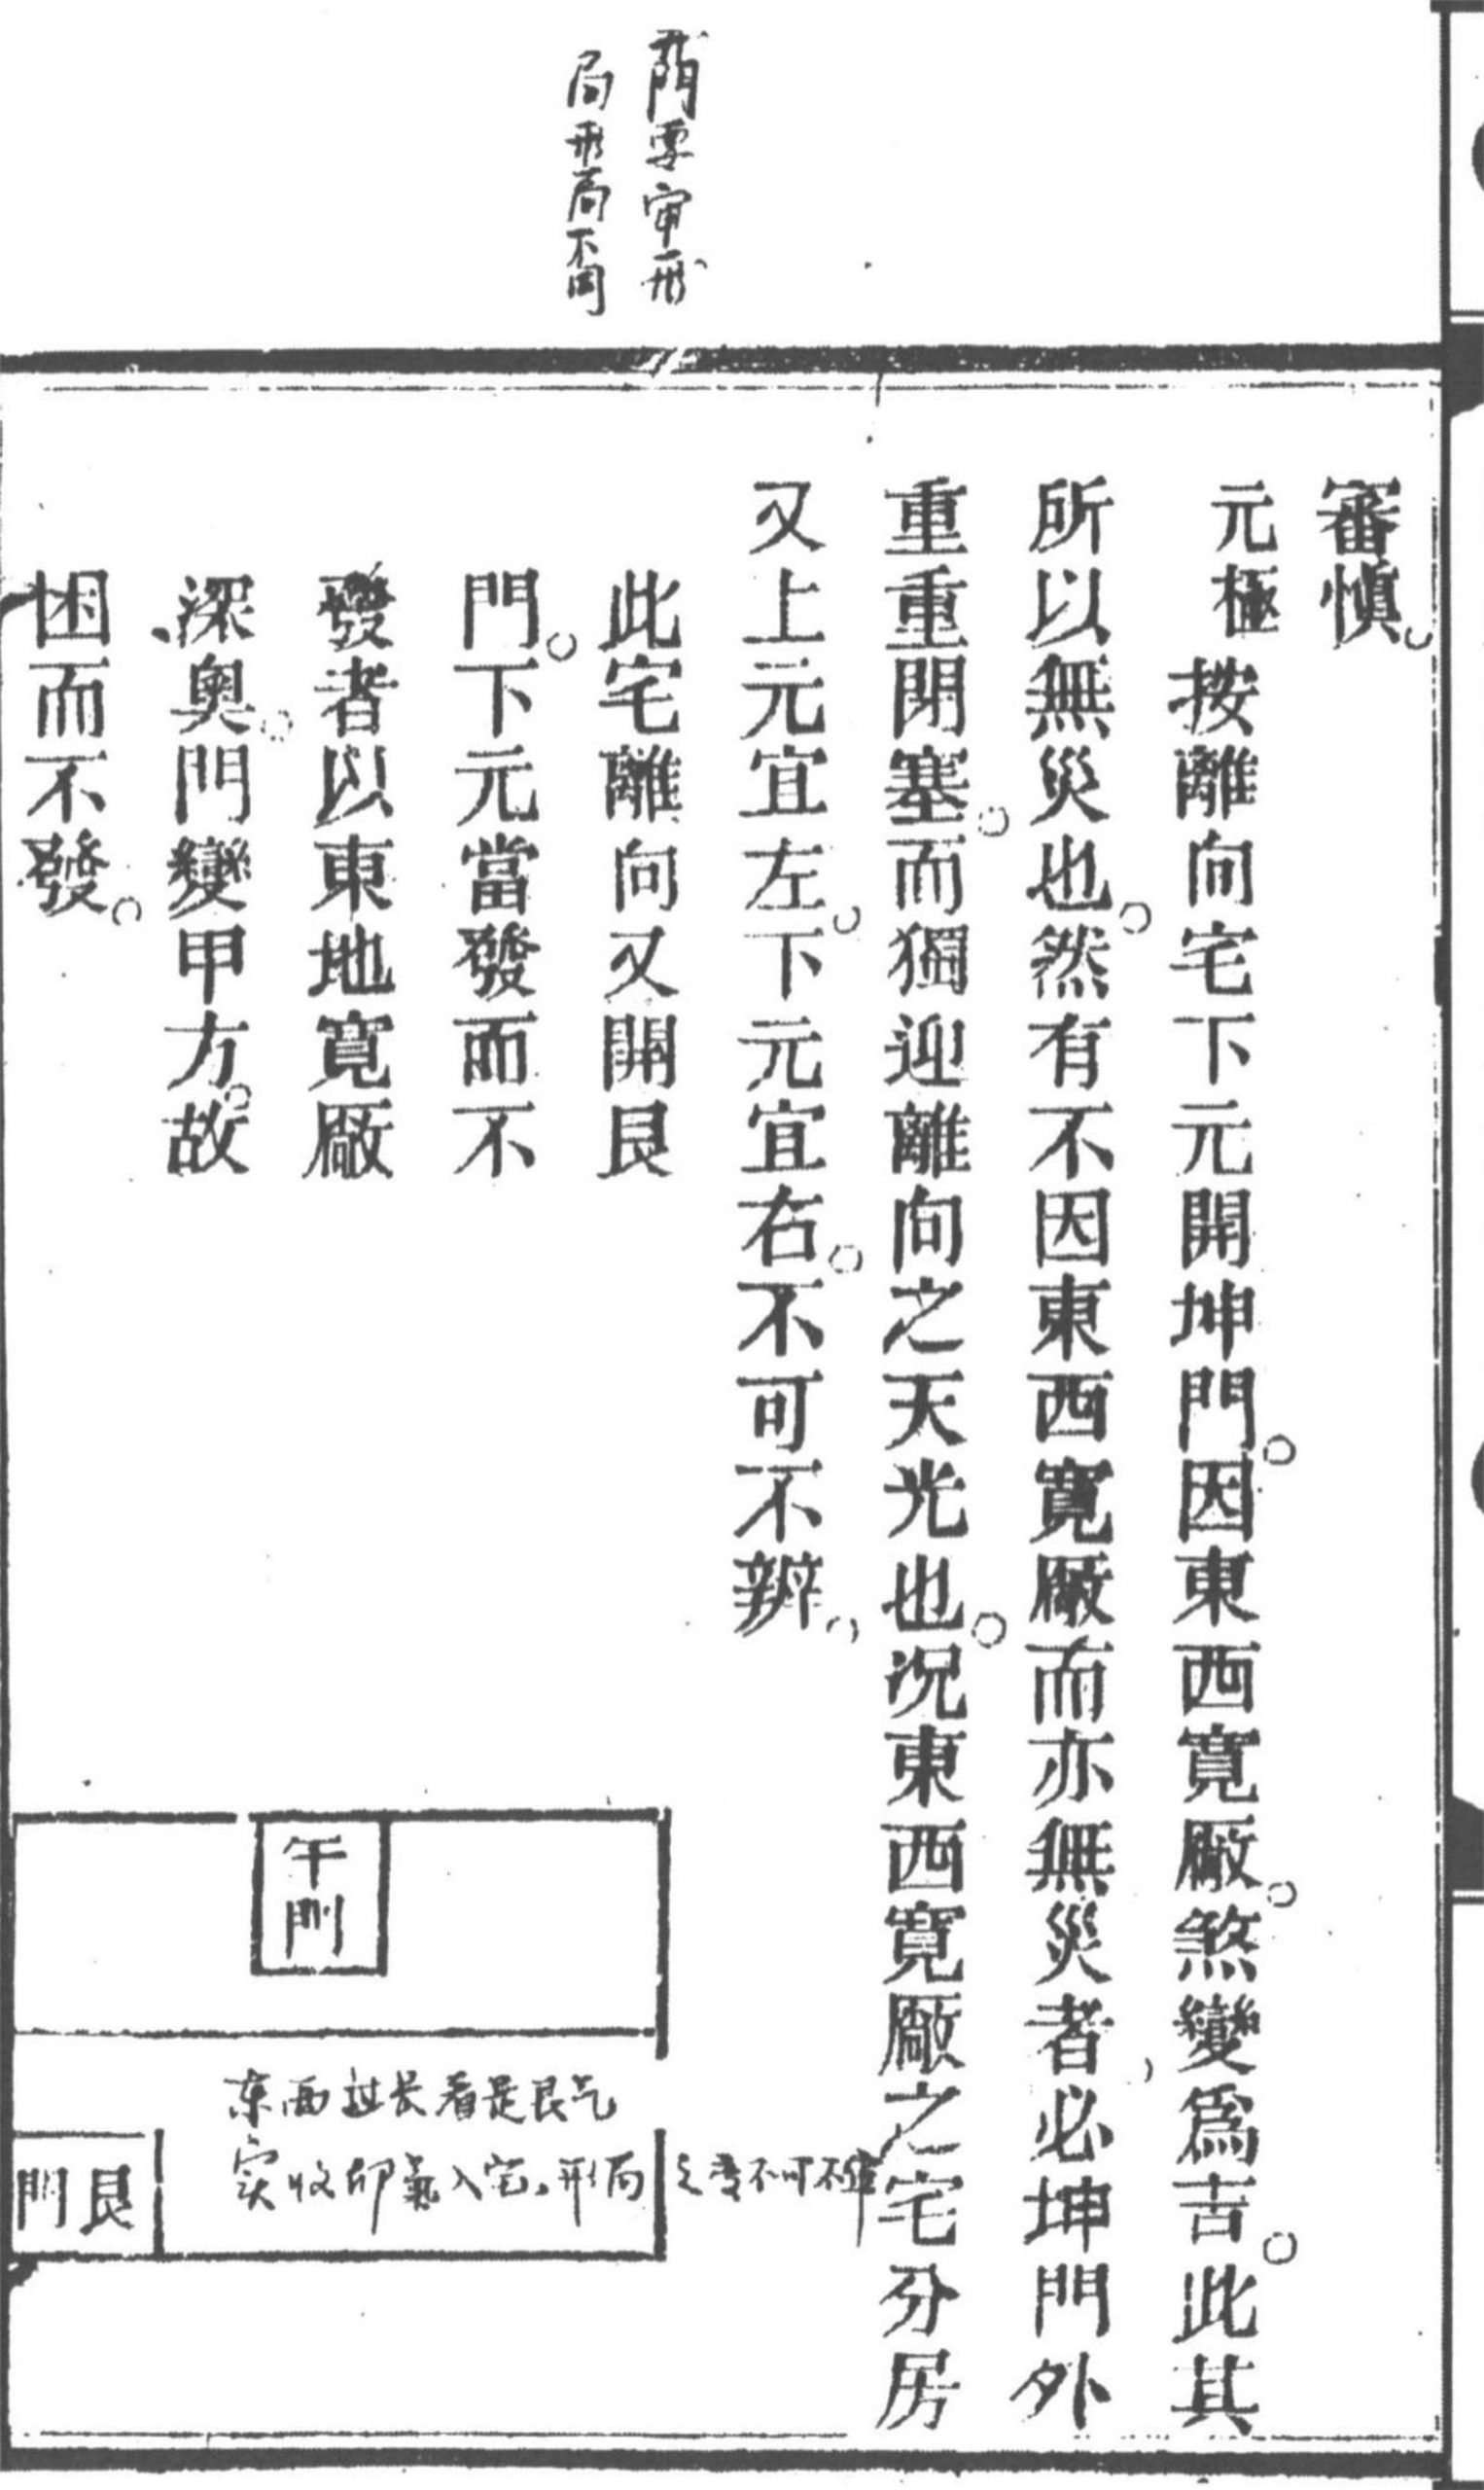 開要審形
局形局不同
審慎。
元極 按離向宅下元開坤門。因東西寬厰。煞變爲吉。此其
所以無災也。然有不因東西寬厰而亦無災者必坤門外
重重閉塞。而獨迎離向之天光也。況東西寬厰之宅分房
又上元宜左。下元宜右。不可不辨。
此宅離向又開艮
門。下元當發而不
發者以東地寬厰
深奥。門變甲方。故
困而不發。
午門
东西过长看是艮气
实收卯氣入宅。形局之變不可不審
艮門